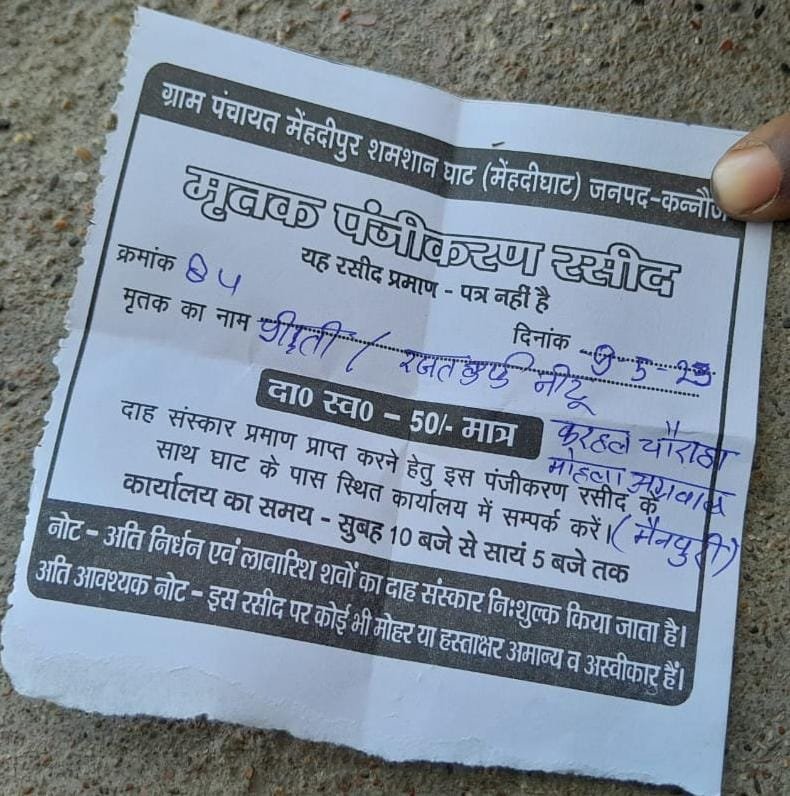 ग्राम पंचायत मेंहदीपुर शमशान घाट (मेंहदीघाट) जनपद-कन्नौज
मृतक पंजीकरण रसीद
यह रसीद प्रमाण - पत्र नहीं है
क्रमांक 84
दिनांक 9-5-23
मृतक का नाम
दा0 स्व0 – 50/- मात्र
करहल चौराहा
मोहला अग्रवाल
(मैनपुरी)
दाह संस्कार प्रमाण प्राप्त करने हेतु इस पंजीकरण रसीद के
साथ घाट के पास स्थित कार्यालय में सम्पर्क करें।
कार्यालय का समय - सुबह 10 बजे से सायं 5 बजे तक
नोट - अति निर्धन एवं लावारिश शवों का दाह संस्कार निःशुल्क किया जाता है।
अति आवश्यक नोट - इस रसीद पर कोई भी मोहर या हस्ताक्षर अमान्य व अस्वीकारु हैं।